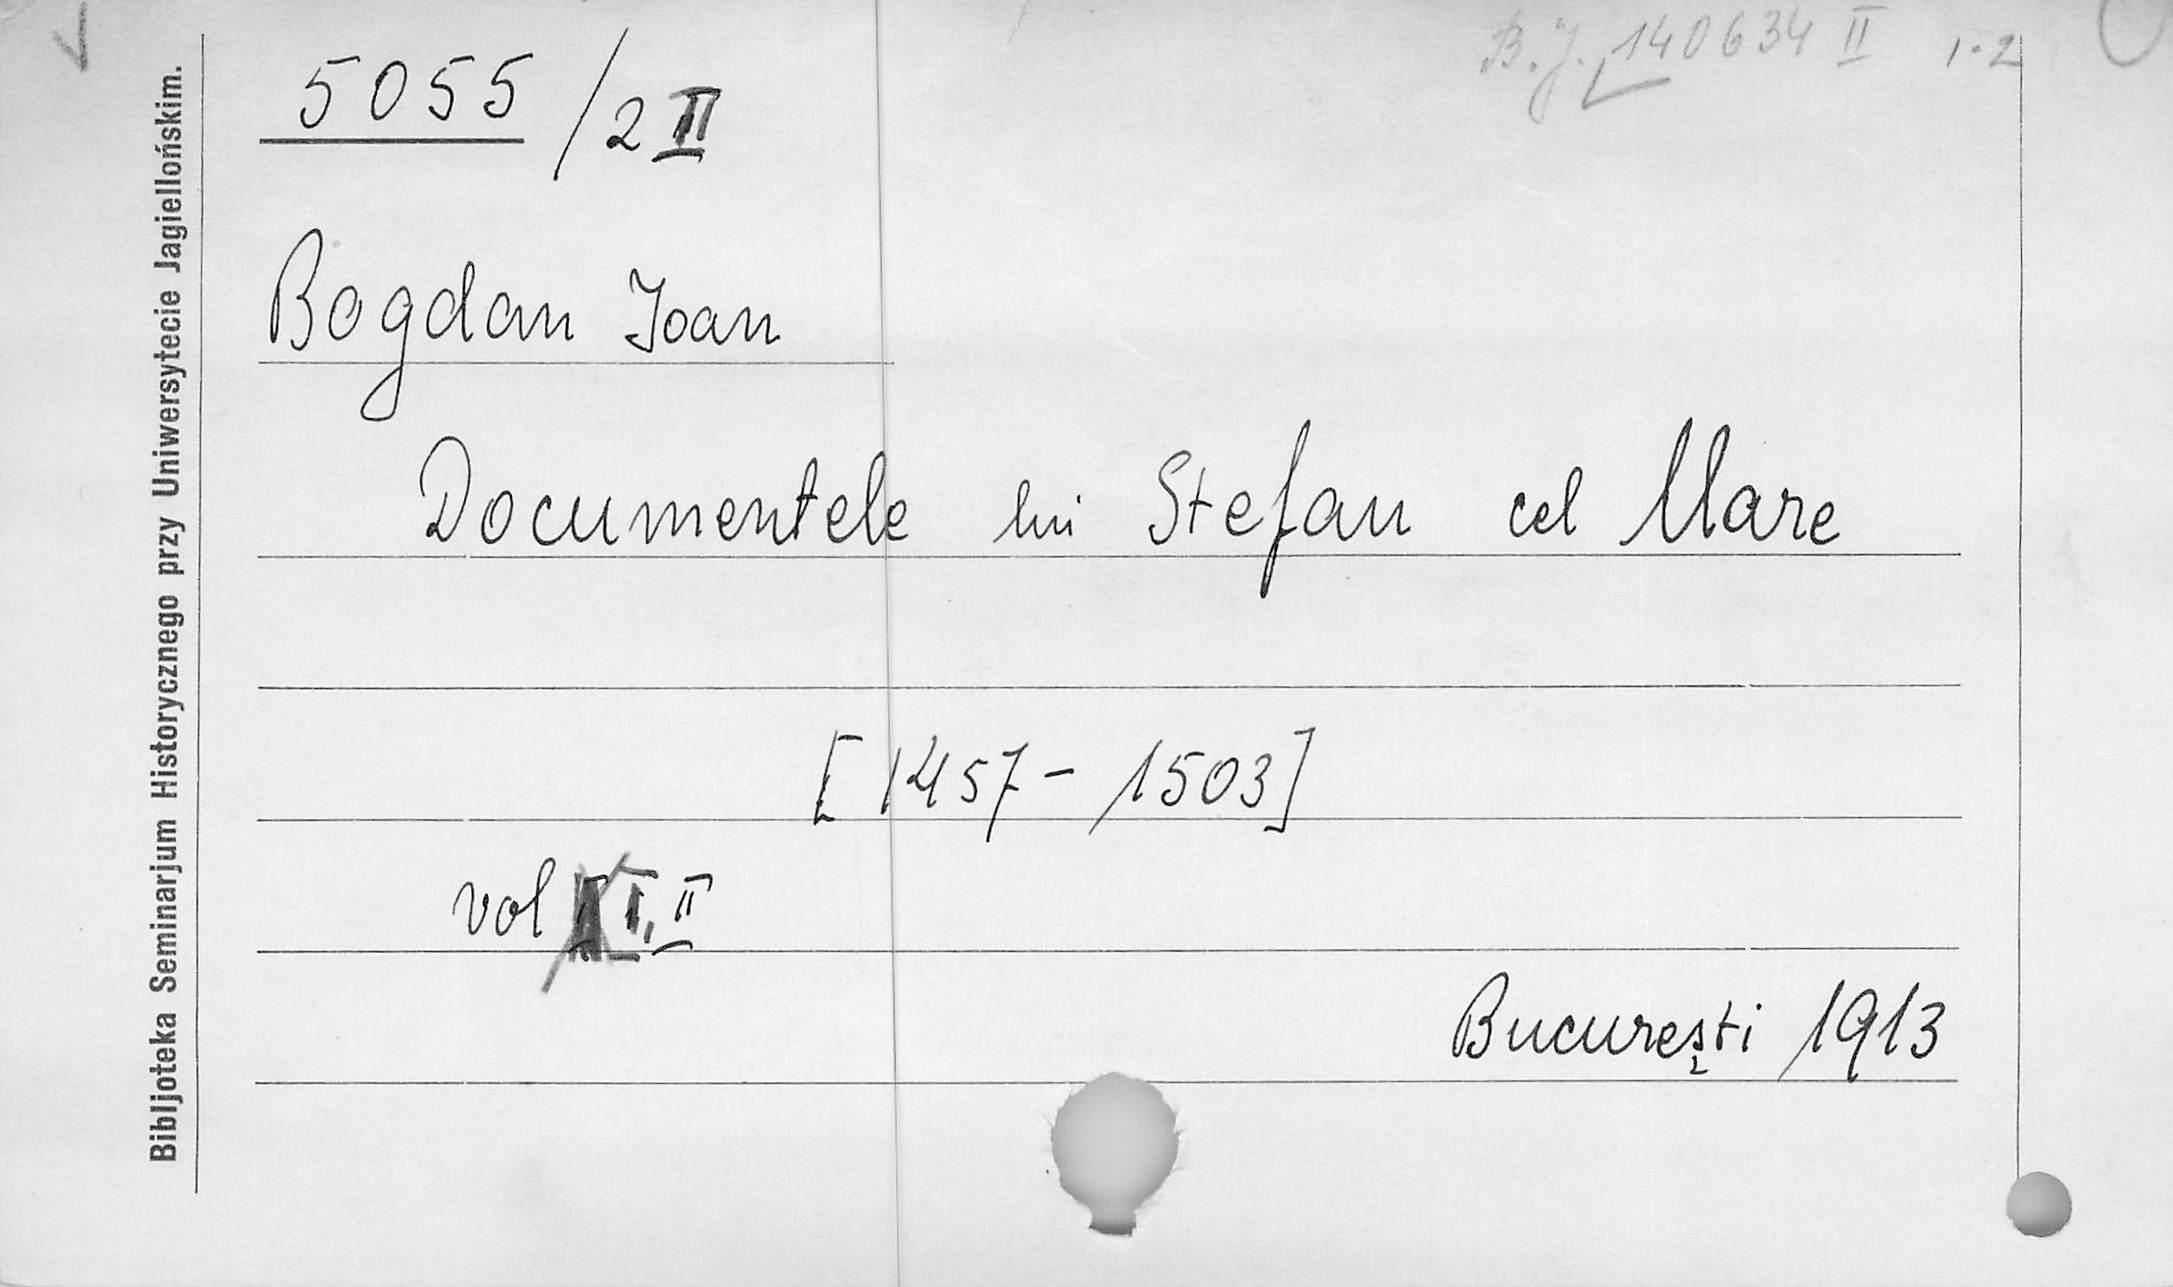 B.J. 140634 II 1-2
5055 / 2 II
Bogdan Joan
Documentele lui Stefan cel Mare
[1457 - 1503]
vol I, II
București 1913
Bibljoteka Seminarjum Historycznego przy Uniwersytecie Jagiellońskim.